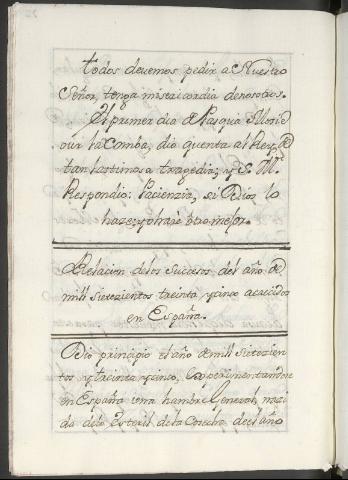 todos devemos pedir a Nuestro
Señor, tenga misericordia de nosotros.
El primer dia de Pasqua Mori
our la Comba, dio quenta al Rey, de
tan lastimosa tragedia; y S. M.
Respondio: Pacienzia, si Dios lo
haze; yo hare otro mejor.
Relacion de los succesos del año de
mill sietezientos treinta y cinco acaecidos
en España.
Dio principio el año de mill sietezien
tos y treinta y cinco, experimentandose
en España una hambre General, nazi
da de lo Esteril de la Cosecha de el año